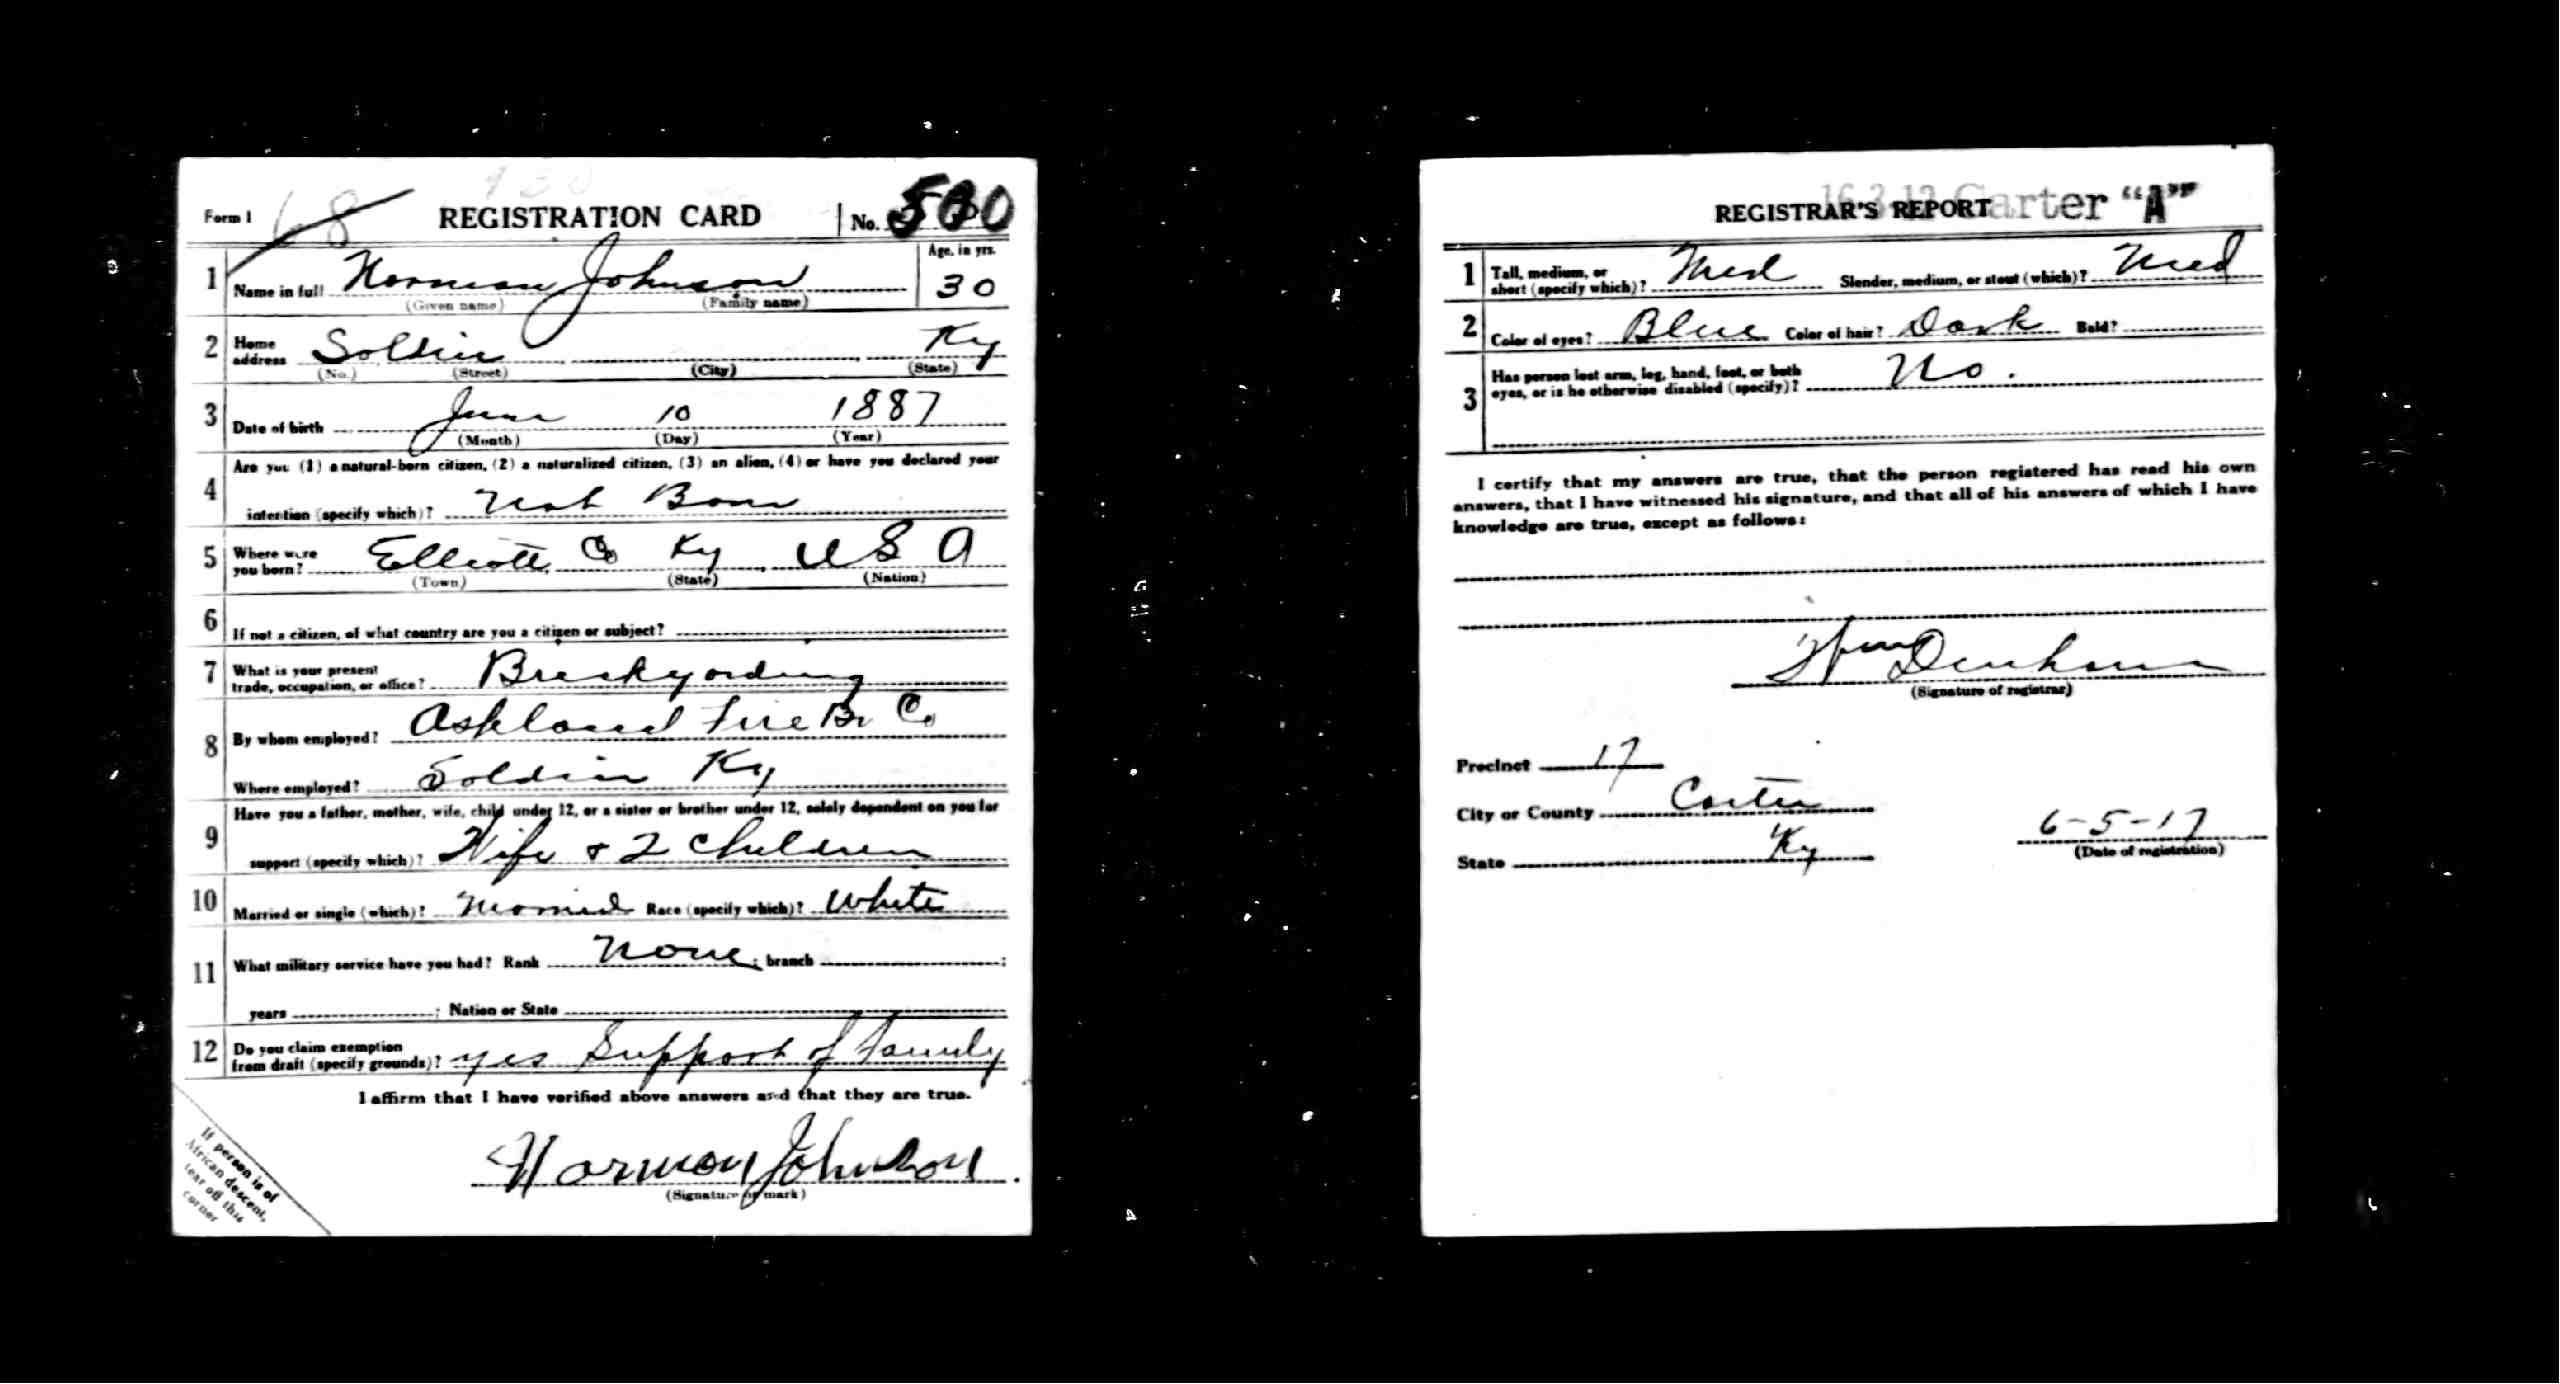 Form 1 68 REGISTRATION CARD No. 500
1 Name in full Norman Johnson Age, in yrs.
(Given name) (Family name) 30
2 Home address Soldier Ky
(No.) (Street) (City) (State)
3 Date of birth June 10 1887
(Month) (Day) (Year)
4 Are you (1) a natural-born citizen, (2) a naturalized citizen, (3) an alien, (4) or have you declared your
intention (specify which)? Nat Born
5 Where were you born? Elliott Co Ky U S A
(Town) (State) (Nation)
6 If not a citizen, of what country are you a citizen or subject?
7 What is your present
trade, occupation, or office? Brickyarding
8 By whom employed? Ashland Fire Br Co
Where employed? Soldier Ky
9 Have you a father, mother, wife, child under 12, or a sister or brother under 12, solely dependent on you for
support (specify which)? Wife & 2 Children
10 Married or single (which)? Married Race (specify which)? White
11 What military service have you had? Rank None ; branch ;
years ; Nation or State
12 Do you claim exemption
from draft (specify grounds)? yes Support of family
I affirm that I have verified above answers and that they are true.
Norman Johnson
(Signature or mark)
If person is of
African descent,
tear off this
corner
REGISTRAR'S REPORT Carter "A"
1 Tall, medium, or
short (specify which)? Med Slender, medium, or stout (which)? Med
2 Color of eyes? Blue Color of hair? Dark Bald?
3 Has person lost arm, leg, hand, foot, or both
eyes, or is he otherwise disabled (specify)? No.
I certify that my answers are true, that the person registered has read his own
answers, that I have witnessed his signature, and that all of his answers of which I have
knowledge are true, except as follows:
Wm
(Signature of registrar)
Precinct 17
City or County Carter
State Ky
6-5-17
(Date of registration)